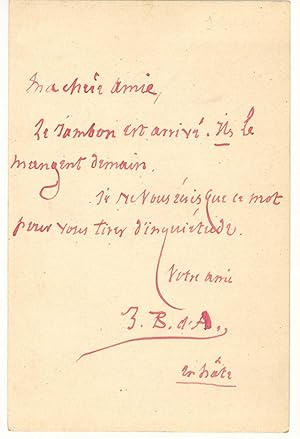 Ma chère amie,
Le Jambon est arrivé. Ils le
mangent demain.
Je ne vous écris que ce mot
pour vous tirer d'inquiétude.
Votre ami
J. B. d'A.
en hâte